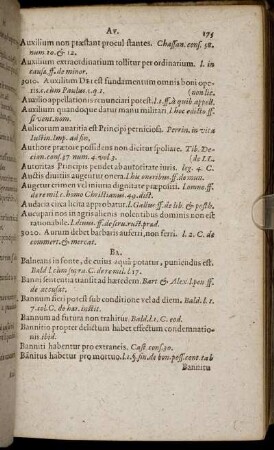 Av. 175
Auxilium non præstant procul stantes. Chassan. cons. 58.
num. 10. & 12.
Auxilium extraordinarium tollitur per ordinarium. l. in
causa. ff. de minor.
3010. Auxilium DEI est fundamentum omnis boni ope-
ris.
Auxilio appellationis renunciari potest. l. 1. ff. à quib. appell.
Auxilium quandoque datur manu militari. l. hoc edicto ff.
si vent. nom.
Aulicorum avaritia est Principi perniciosa. Perrin. in vita
Iustin. Imp. ad fin.
Authore prætore possidens non dicitur spoliare. Tib. De-
cian. cons. 37. num. 4. vol. 3.
Autoritas Principis pendet ab autoritate iuris. leg. 4. C.
Auctis divitiis augentur onera.
Augetur crimen vel minima dignitate præpositi.
de re mil. c. homo Christianus. 49. dist.
Audacia circa licita approbatur.
Aucupari nos in agris alienis nolentibus dominis non est
rationabile. l. divus. ff. de seru. rust. præd.
3020. Aurum debet barbaris auferri, non ferri. l. 2. C. de
commert. & mercat.
BA.
Balneans in fonte, de cuius aqua potatur, puniendus est.
Banni sententia transit ad hæredem. Bart & Alex. l. pen ff.
de accusat.
Bannum fieri potest sub conditione vel ad diem. Bald. l. 1.
7. col. C. de hær. instit.
Bannum ad futura non trahitur. Bald. l. 1. C. eod.
Bannitio propter delictum habet effectum condemnatio-
nis ibid.
Banniti habentur pro extraneis. Cast. cons. 30.
Banitus habetur pro mortuo.
Bannitus